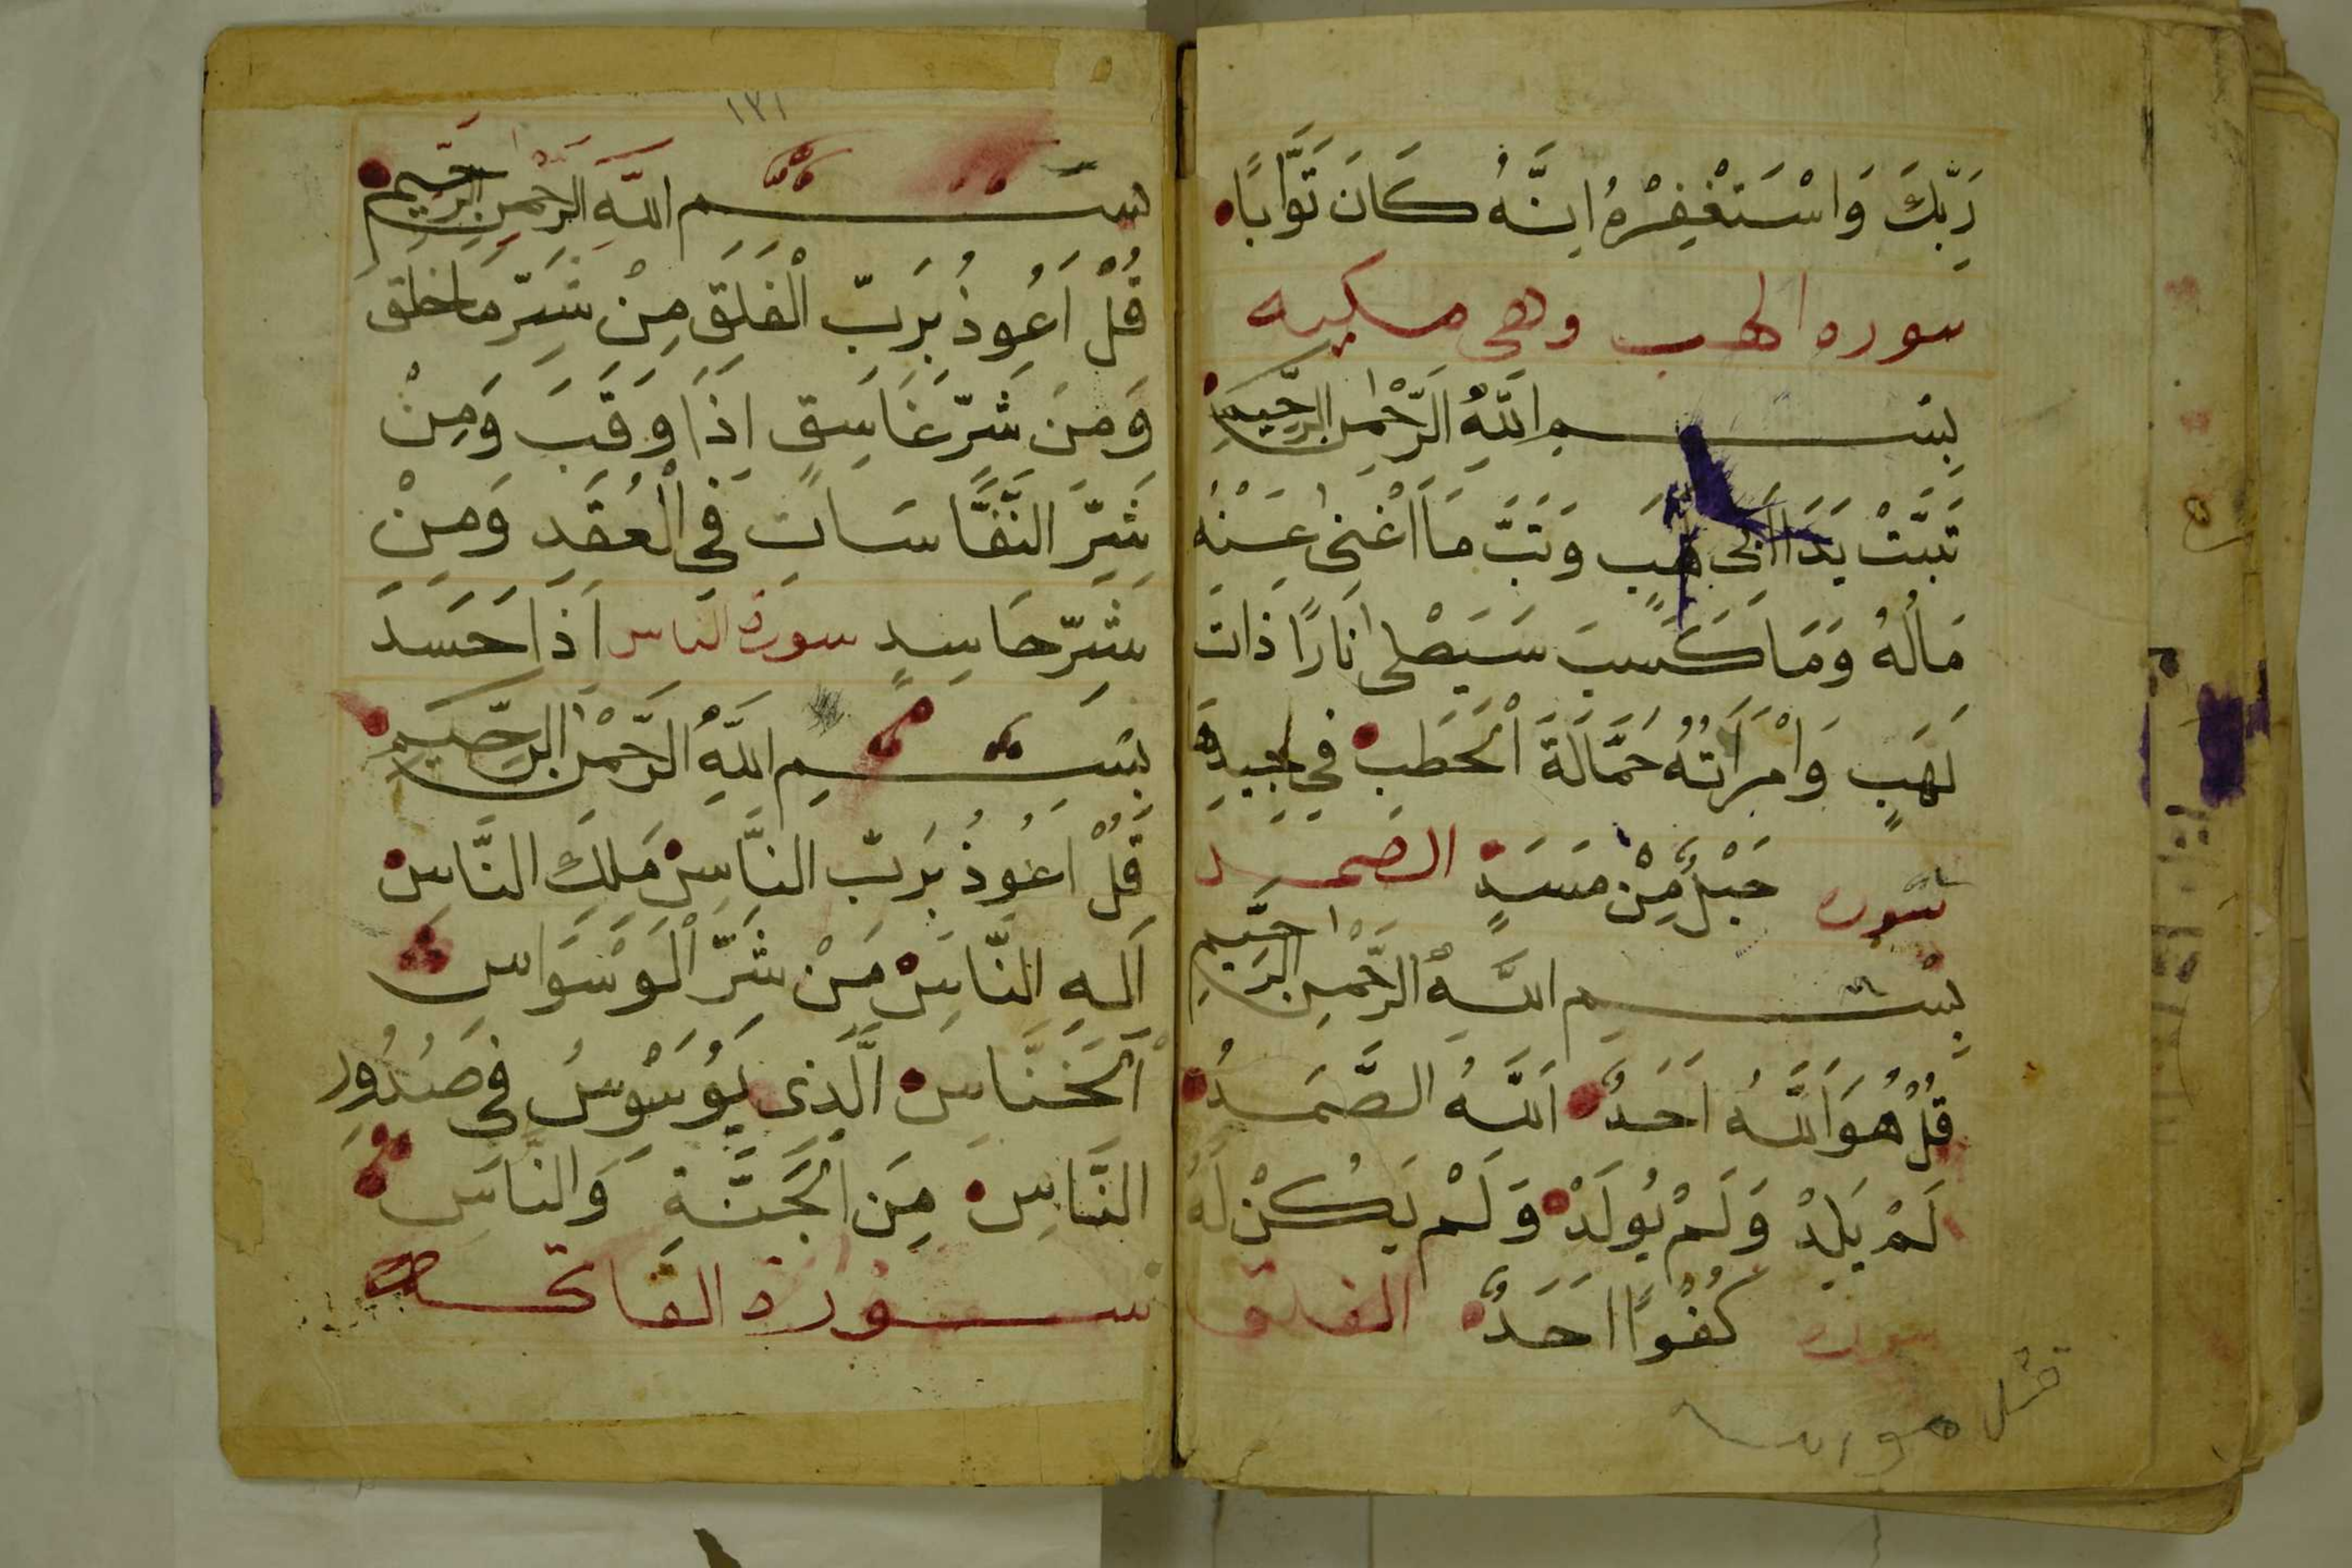 رَبِّكَ وَاسْتَغْفِرْهُ اِنَّهُ كَانَ تَوَّابًا
سوره الهب وهى مكيه
بِسْمِ اللَّهِ الرَّحْمٰنِ الرَّحِيمِ
تَبَّتْ يَدَا اَبِى لَهَبٍ وَتَبَّ مَا اَغْنٰى عَنْهُ
مَالُهُ وَمَا كَسَبَ سَيَصْلٰى نَارًا ذَاتَ
لَهَبٍ وَامْرَاَتُهُ حَمَّالَةَ الْحَطَبِ فِي جِيدِهَ
سوره حَبْلٌ مِنْ مَسَدٍ الصمد
بِسْمِ اللَّهِ الرَّحْمٰنِ الرَّحِيمِ
قُلْ هُوَ اَللَّهُ اَحَدٌ اَللَّهُ الصَّمَدُ
لَمْ يَلِدْ وَلَمْ يُولَدْ وَلَمْ يَكُنْ لَهُ
سوره كُفُوًا اَحَدٌ الفلق
قل هو الله
١٣١
بسم اللَّهِ الرَّحْمٰنِ الرَّحِيمِ
قُلْ اَعُوذُ بِرَبِّ الْفَلَقِ مِنْ شَرِّ مَا خَلَقَ
وَمِنَ شَرِّ غَاسِقٍ اِذَا وَقَبَ وَمِنْ
شَرِّ النَّفَّاسَاتِ فِى الْعُقَدِ وَمِنْ
شَرِّ حَاسِدٍ سورة الناس اِذَا حَسَدَ
بِسْمِ اللَّهِ الرَّحْمٰنِ الرَّحِيمِ
قُلْ اَعُوذُ بِرَبِّ النَّاسِ مَلِكِ النَّاسِ
اِلَهِ النَّاسِ مِنْ شَرِّ الْوَسْوَاسِ
اَلْخَنَّاسِ الَّذِى يُوَسْوِسُ فِى صُدُورِ
النَّاسِ مِنَ الْجَنَّةِ وَالنَّاسِ
سورة الفاتحة